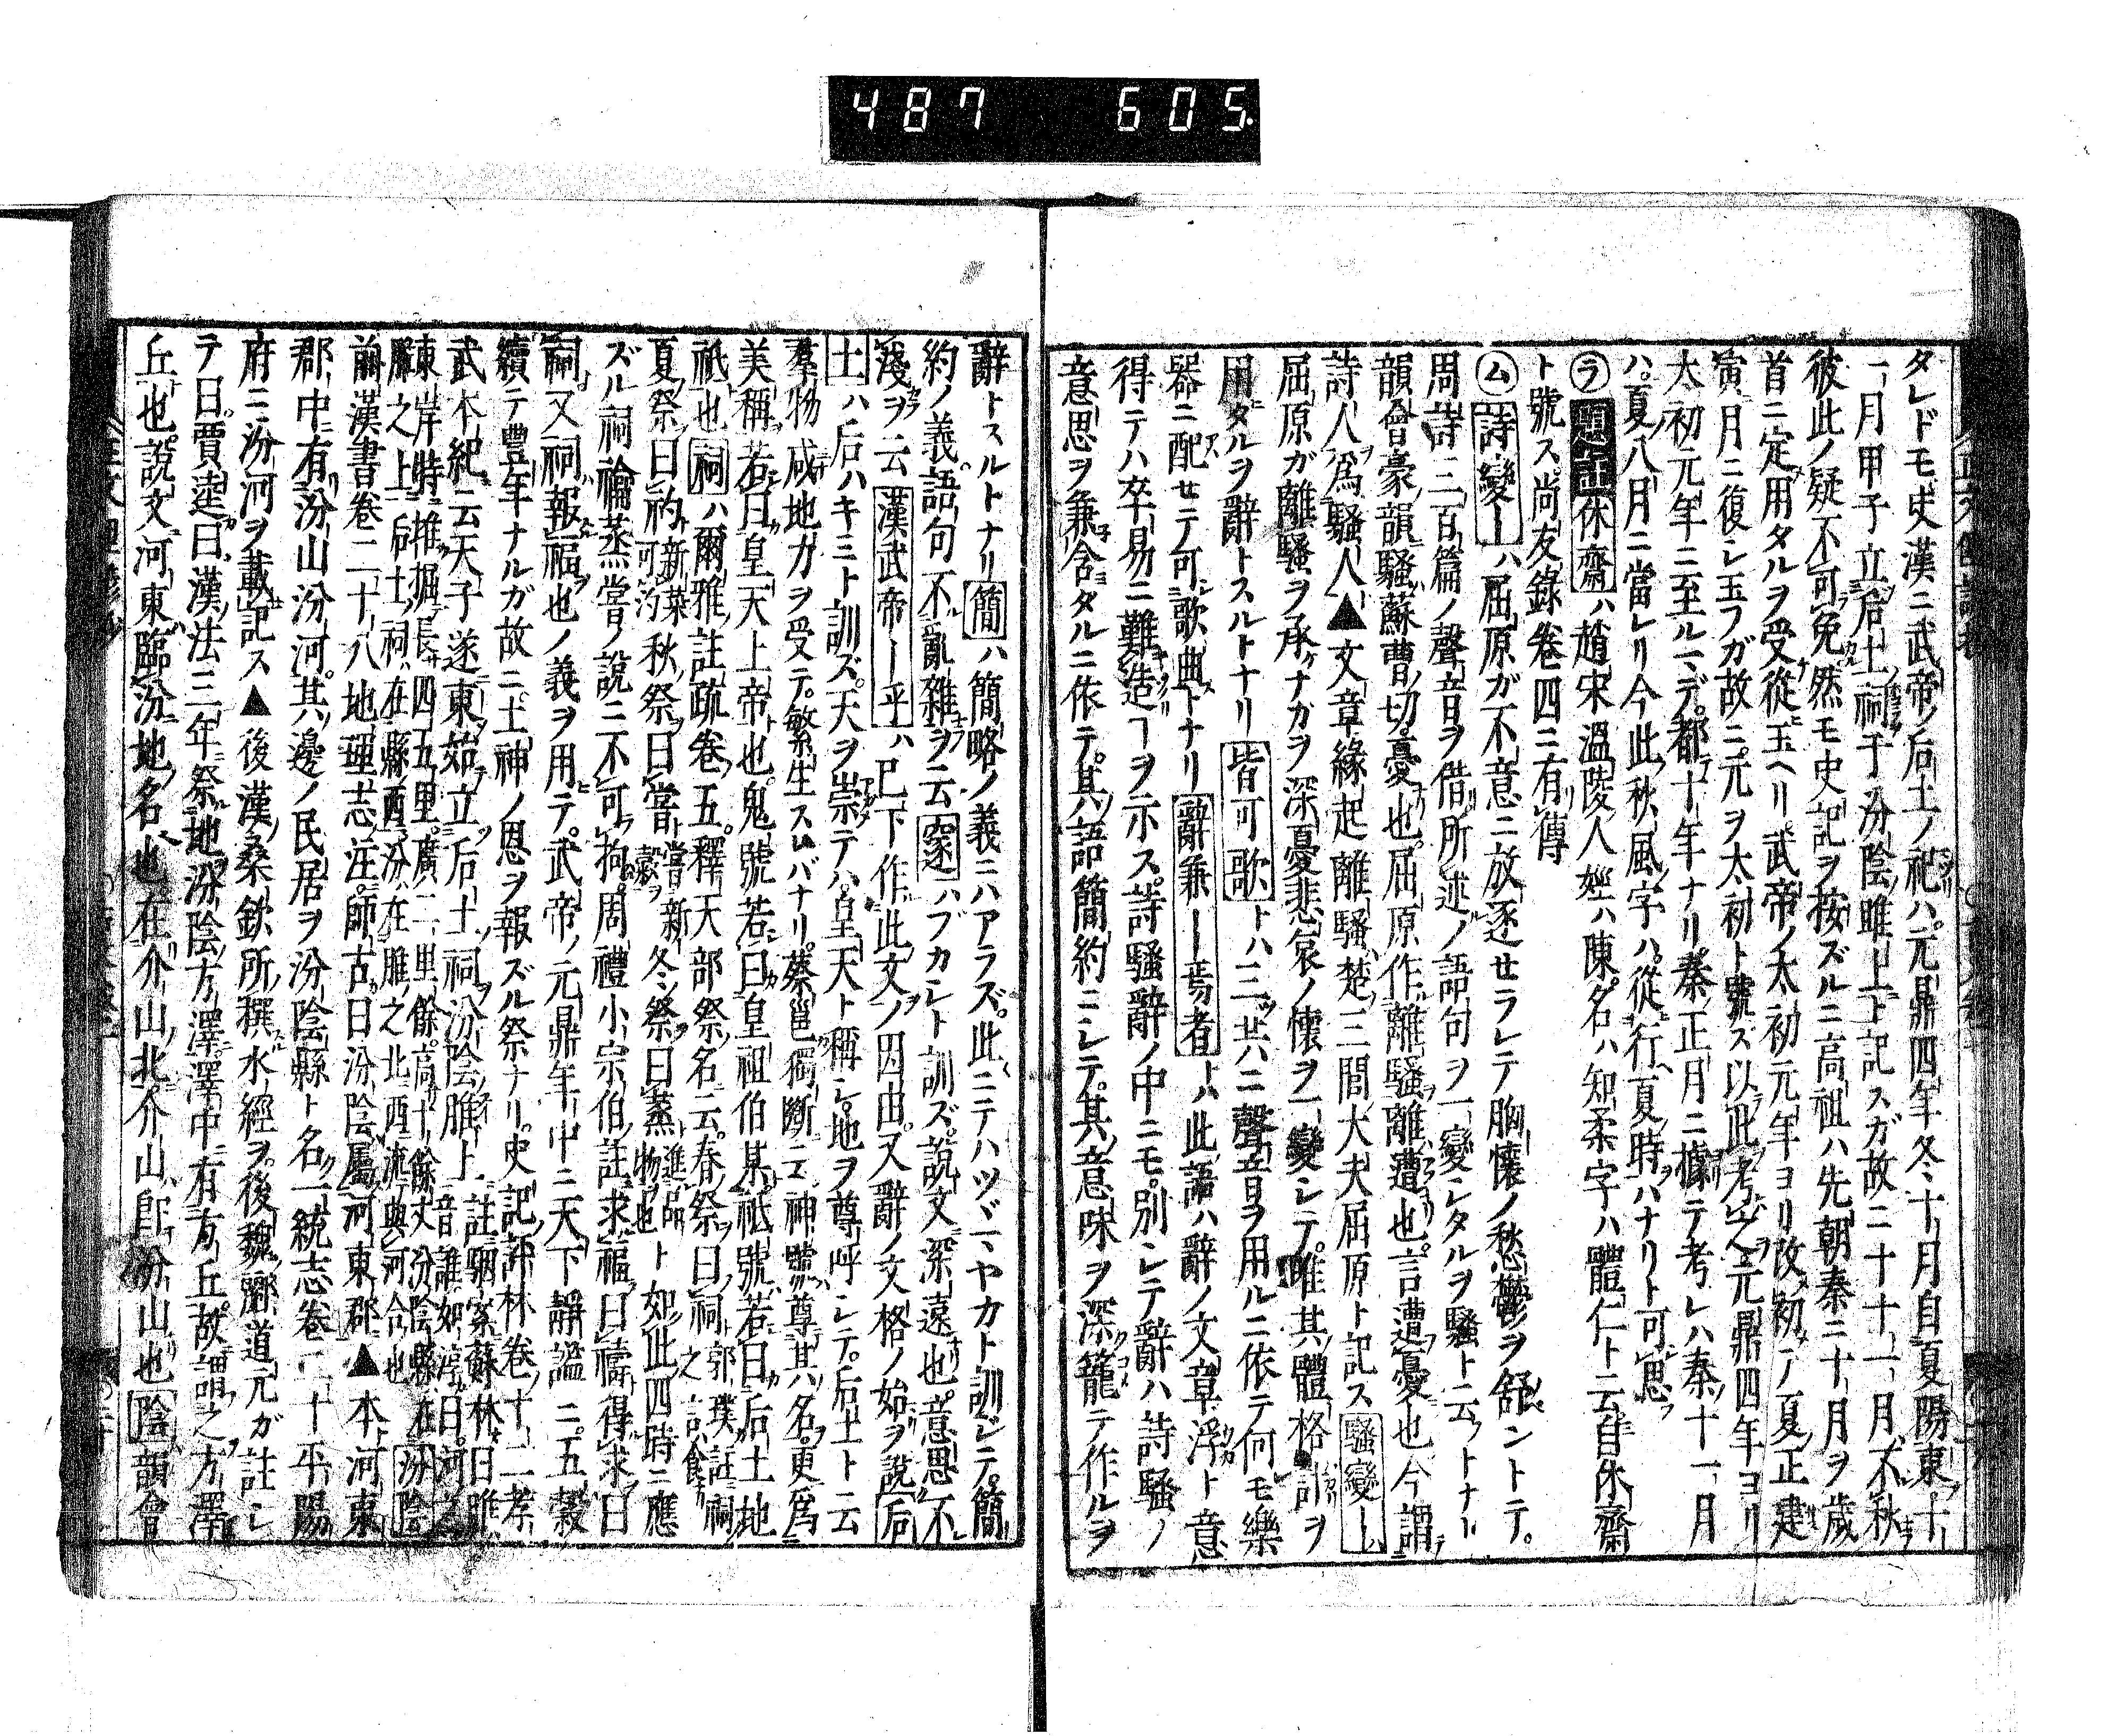 487 605
タレドモ史漢ニ武帝ノ后土ノ祀ハ元鼎四年冬十月自夏陽東十
一月甲子立后土祠于汾陰脽上ト記スガ故ニ十十一月不秋
彼此ノ疑不可免然モ史記ヲ按ズルニ高祖ハ先朝秦ニ十月ヲ歳
首ニ定用タルヲ受從玉ヘリ武帝ノ太初元年ヨリ改初テ夏正建
寅月ニ復シ玉フガ故ニ元ヲ太初ト號ス以此考之元鼎四年ヨリ
太初元年ニ至ルマデ都十年ナリ秦正月ニ據テ考レハ秦十一月
ハ夏八月ニ當レリ今此秋風字ハ從行夏時ハナリト可思
㋶題註休齋ハ趙宋溫陵人姪ハ陳名ハ知柔字ハ體仁ト云自休齋
ト號ス尚友錄卷四ニ有傳
㋰詩變ーハ屈原ガ不意ニ放逐セラレテ胸懷ノ愁鬱ヲ舒ントテ
周詩三百篇ノ聲音ヲ借所述ノ語句ヲ一變シタルヲ騷ト云フトナリ
韻會豪韻騷蘇曹切憂也屈原作離騷離遭也言遭憂也今謂
詩人爲騷人▲文章緣起離騷楚三閭大夫屈原ト記ス騷變ーハ
屈原ガ離騷ヲ承ケナガラ深憂悲哀ノ懷ヲ一變シテ唯其體格計ヲ
用タルヲ辭トスルトナリ皆可歌トハ三ツ共ニ聲音ヲ用ルニ依テ何モ樂
器ニ配セテ可歌曲トナリ辭兼ー焉者トハ此語ハ辭ノ文章浮ト意
得テハ卒易ニ難造ヿヲ示ス詩騷辭ノ中ニモ別シテ辭ハ詩騷ノ
意思ヲ兼含タルニ依テ其語簡約ニシテ其意味ヲ深籠テ作ルヲ
辭トスルトナリ簡ハ簡略ノ義ニハアラズ此ニテハツヾマヤカト訓ジテ簡
約ノ義語句不亂雜ヲ云邃ハブカシト訓ズ說文深遠也意思不
淺ヲ云漢武帝ー乎ハ已下作此文ノ因由又辭ノ文格ノ始ヲ說后
土ハ后ハキミト訓ズ天ヲ崇テハ皇天ト稱シ地ヲ尊呼シテ后土ト云
羣物咸地力ヲ受テ繁生スレバナリ蔡邕獨斷ニ云神號尊其名更爲
美稱若曰皇天上帝也鬼號若曰皇祖伯某祇號若曰后土地
祇也祠ハ爾雅註疏卷五釋天部祭名云春祭曰祠郭璞註祠之言食
夏祭曰礿新菜可汋秋祭曰嘗嘗新穀ヲ冬祭曰蒸進品物也ト如此四時ニ應
ズル祠禴蒸嘗ノ說ニ不可拘周禮小宗伯註求福曰禱得求曰
祠又祠報福也ノ義ヲ用テ武帝ノ元鼎年中ニ天下靜謐ニ五穀
續テ豐年ナルガ故ニ土神ノ恩ヲ報ズル祭ナリ史記評林卷十二孝
武本紀云天子遂東始立后土祠汾陰脽上註駰案蘇林曰脽音誰如淳曰河之
東岸特堆掘長四五里廣二里餘高十餘丈汾陰縣在
脽之上后土祠在縣西汾在脽之北西流與河合也汾陰
前漢書卷二十八地理志注師古曰汾陰屬河東郡▲本河東
郡中有汾山汾河其邊ノ民居ヲ汾陰縣ト名一統志卷二十平陽
府ニ汾河ヲ載記ス▲後漢桑欽所撰水經ヲ後魏酈道元ガ註シ
テ曰賈逵曰漢法三年祭地汾陰方澤澤中有方丘故謂之方澤
丘也說文河東臨汾地名也在介山北介山卽汾山也陰韻會